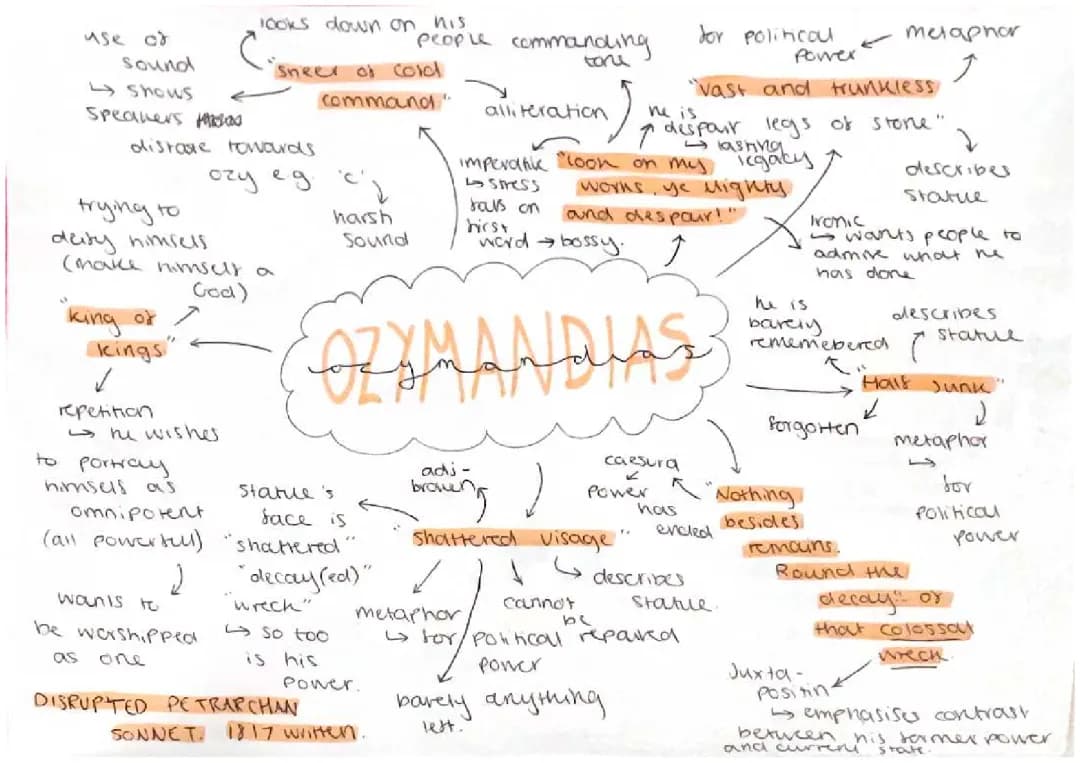 looks down on his
people
use of
sound
↳ shows
speakers
distaste towards
ozy e.g. 'c'
harsh
sound
"sneer of cold
command"
alliteration
commanding
tone
imperative
↳ stress
falls on
first
word → bossy.
"look on my
works, ye Mighty
and despair!"
he is
despair
↳ lasting
legacy
ironic
↳ wants people to
admire what he
has done
for political
power
metaphor
"vast and trunkless
legs of stone"
describes
statue
trying to
deify himself
(make himself a
God)
"king of
kings"
repetition
↳ he wishes
to portray
himself as
omnipotent
(all powerful)
wants to
be worshipped
as one
OZYMANDIAS
ozymandias
he is
barely
rememebered
describes
statue
"Half sunk"
forgotten
metaphor
↳
for
political
power
adj-
broken
statue's
face is
"shattered"
"decay(ed)"
"wreck"
↳ so too
is his
power.
"shattered visage"
metaphor
↳ for political
power
cannot
be
repaired
describes
statue.
barely anything
left.
caesura
power
has
ended
"Nothing
besides
remains.
Round the
decay" of
that colossal
wreck.
Juxta-
positin
↳ emphasises contrast
between his former power
and current state.
DISRUPTED PETRARCHAN
SONNET. 1817 written.